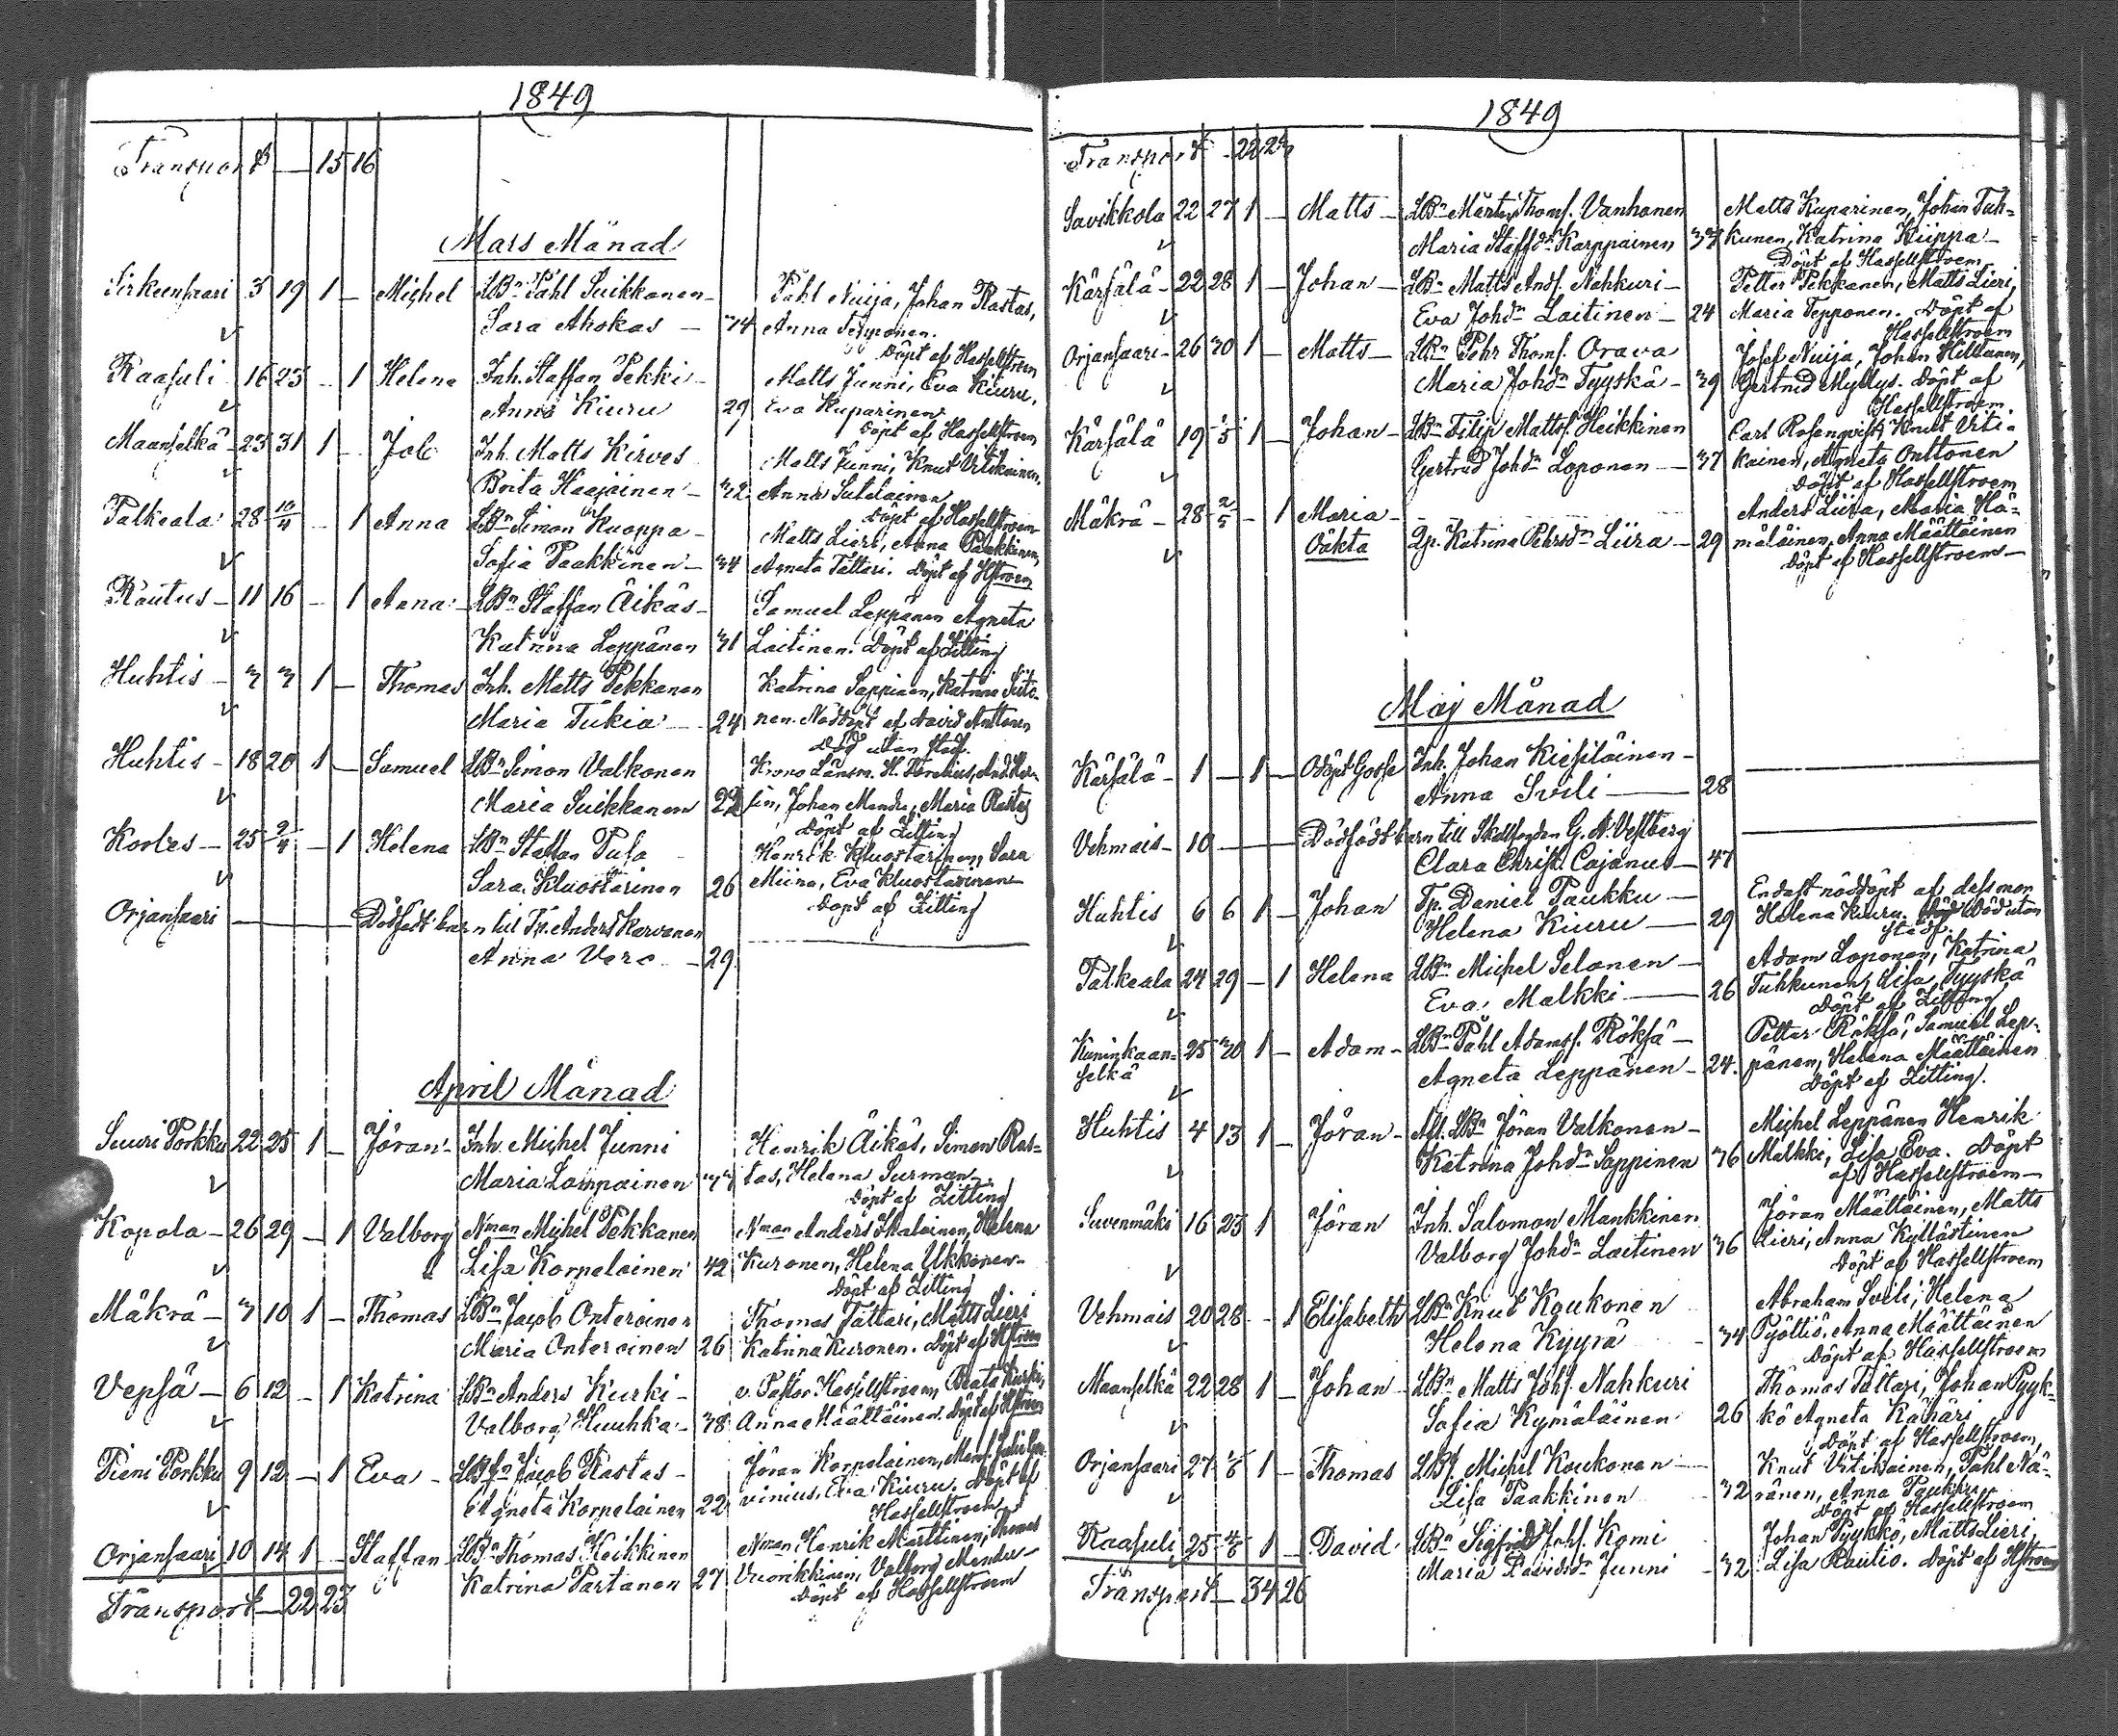 1849
Transport — 15 16
Mars Månad
Sirkeensaari 3 19 1 — Michel LBn Påhl Suikkanen — Påhl Nuija, Johan Rastas,
Sara Ahokas — 34 Anna Tepponen.
Döpt af Hasselstroem
Raasuli 16 23 — 1 Helena Inh. Staffan Pekki — Matts Junni, Eva Kiuru,
Anna Kiuru 29 Eva Kuparinen
Döpt af Hasselstroem
Maanselkä 23 31 1 — Job Inh. Matts Kirves Matts Junni, Knut Vitikainen,
Brita Haajainen — 32 Anna Sutelainen
Döpt af Hasselstroem
Palkeala 28 10/4 — 1 Anna LBn Simon Kuoppa — Matts Lieri, Anna Paakkinen,
Sofia Paakkinen — 34 Agneta Tattari. Döpt af Hstroem
Rautus — 11 16 — 1 Anna — LBn Staffan Äikäs — Samuel Leppänen Agneta
Katrina Leppänen 31 Laitinen. Döpt af Zitting
Huhtis — 3 3 1 — Thomas Inh. Matts Pekkanen Katrina Sappinen, Katrina Siito-
Maria Tukia — 24 nen. Nöddöpt af David Anttonen
Död utan stad.
Huhtis — 18 20 1 — Samuel LBn Simon Valkonen Krono Länsm. H.
Maria Suikkanen 22 Johan Mandu, Maria Rastas
Döpt af Zitting
Korles — 25 2/4 — 1 Helena LBn Staffan Pusa Henrik Kluostarinen, Sara
Sara Kluostarinen 26 Miina, Eva Kluostarinen
Döpt af Zitting
Orjansaari — Dödfödt barn till Tp. Anders Karvanen
Anna Vero — 29
April Månad
Suuri Porkku 22 25 1 — Jöran — Inh. Michel Junni Henrik Äikäs, Simon Ras-
Maria Lampainen 33 tas, Helena Surman
Döpt af Zitting
Kopola — 26 29 — 1 Valborg Nman Michel Pekkanen Nman Anders Ihalainen, Helena
Lisa Korpelainen 42 Kuronen, Helena Ukkonen
Döpt af Zitting
Mäkrä — 3 10 1 — Thomas LBn Jacob Onteroinen Thomas Tattari, Matts Lieri
Maria Onteroinen 26 Katrina Kuronen. Döpt af Hstroem
Vepsä — 6 12 — 1 Katrina LBn Anders Kurki — v. Pastor Hasselstroem, Beata Kurki,
Valborg Huuhka — 38 Anna Määttäinen. Döpt af Hstroem
Pieni Porkku 9 12 — 1 Eva — LBn Jacob Rastas — Jöran Korpelainen,
Agneta Korpelainen 22 Eva Kiuru. Döpt af
Hasselstroem
Orjansaari 10 14 1 — Staffan LBn Thomas Heikkinen Nman Henrik Marttinen, Thomas
Katrina Partanen 27 Vuorikkinen, Valborg Mandu —
Döpt af Hasselstroem
Transport — 22 23
1849
Transport — 22 23
Savikkola 22 27 1 — Matts — LBn Mårten Thoms. Vanhanen Matts Kuparinen, Johan Tuh-
Maria Staffdr Karppainen 33 kunen, Katrina Kiippa —
Döpt af Hasselstroem
Kärsälä — 22 28 1 — Johan — LBn Matts Ands. Nahkuri — Petter Pekkanen, Matts Lieri,
Eva Johdr Laitinen — 24 Maria Tepponen. Döpt af
Hasselstroem
Orjansaari — 26 30 1 — Matts — LBn Pehr Thoms. Orava Josef Nuija, Johan Hiltunen,
Maria Johdr Tyyskä — 39 Gertrud Myllys. Döpt af
Hasselstroem
Kärsälä 19 1/5 1 — Johan — LBn Filip Mattss. Heikkinen Carl Rosenqvist, Knut Viti-
Gertrud Johdr Loponen — 37 kainen, Agneta Onttonen
Döpt af Hasselstroem
Mäkrä — 28 2/5 — 1 Maria — Anders Liira, Maria Hä-
Oäkta Qp. Katrina Pehrsdr Liira — 29 mäläinen, Anna Määttäinen
Döpt af Hasselstroem —
Maj Månad
Kärsälä — 1 — 1 — Odöpt Gosse Inh. Johan Kiesiläinen —
Anna Svili — 28
Vehmais — 10 — Dödfödt barn till Skallfogden G. A. Vestberg
Clara Christ. Cajanus — 47
Huhtis 6 6 1 — Johan Tp. Daniel Paukku — Endast nöddöpt af dess mor
Helena Kiuru — 29 Helena Kiuru. Död utan
stad.
Palkeala 24 29 — 1 Helena LBn Michel Selonen — Adam Loponen, Katrina
Eva Malkki — 26 Tuhkunen, Lisa Tyyskä
Döpt af Zitting
Kuninkaan- 25 30 1 — Adam — LBn Påhl Adamss. Röksä — Petter Röksä, Samuel Lep-
selkä Agneta Leppänen — 24. pänen, Helena Määttäinen
Döpt af Zitting.
Huhtis 4 13 1 — Jöran — Afl. LBn Jöran Valkonen — Michel Leppänen Henrik
Katrina Johdr Sappinen 36 Malkki, Lisa Eva. Döpt
af Hasselstroem —
Suvenmäki 16 25 1 Jöran Inh. Salomon Mankkinen Jöran Määttäinen, Matts
Valborg Johdr Laitinen 36 Lieri, Anna Kyllästinen
Döpt af Hasselstroem
Vehmais 20 28 — 1 Elisabeth LBn Knut Koukonen Abraham Svili, Helena
Helena Kyyrä — 34 Pyöttiö, Anna Määttäinen
Döpt af Hasselstroem
Maanselkä 22 28 1 — Johan — LBn Matts Johs. Nahkuri Thomas Tattari, Johan Pyyk-
Sofia Kymäläinen 26 kö Agneta Kähäri
Döpt af Hasselstroem
Orjansaari 27 1/6 1 — Thomas LBs. Michel Koukonen — Knut Vitikainen, Påhl Nä-
Lisa Paakkinen 32 ränen, Anna Paukku
Döpt af Hasselstroem
Raasuli 25 4/6 1 — David LBn Sigfrid Johs. Komi Johan Pyykkö, Matts Lieri,
Maria Davidsdr Junni — 32 Lisa Rautio. Döpt af Hstroem
Transport — 34 26